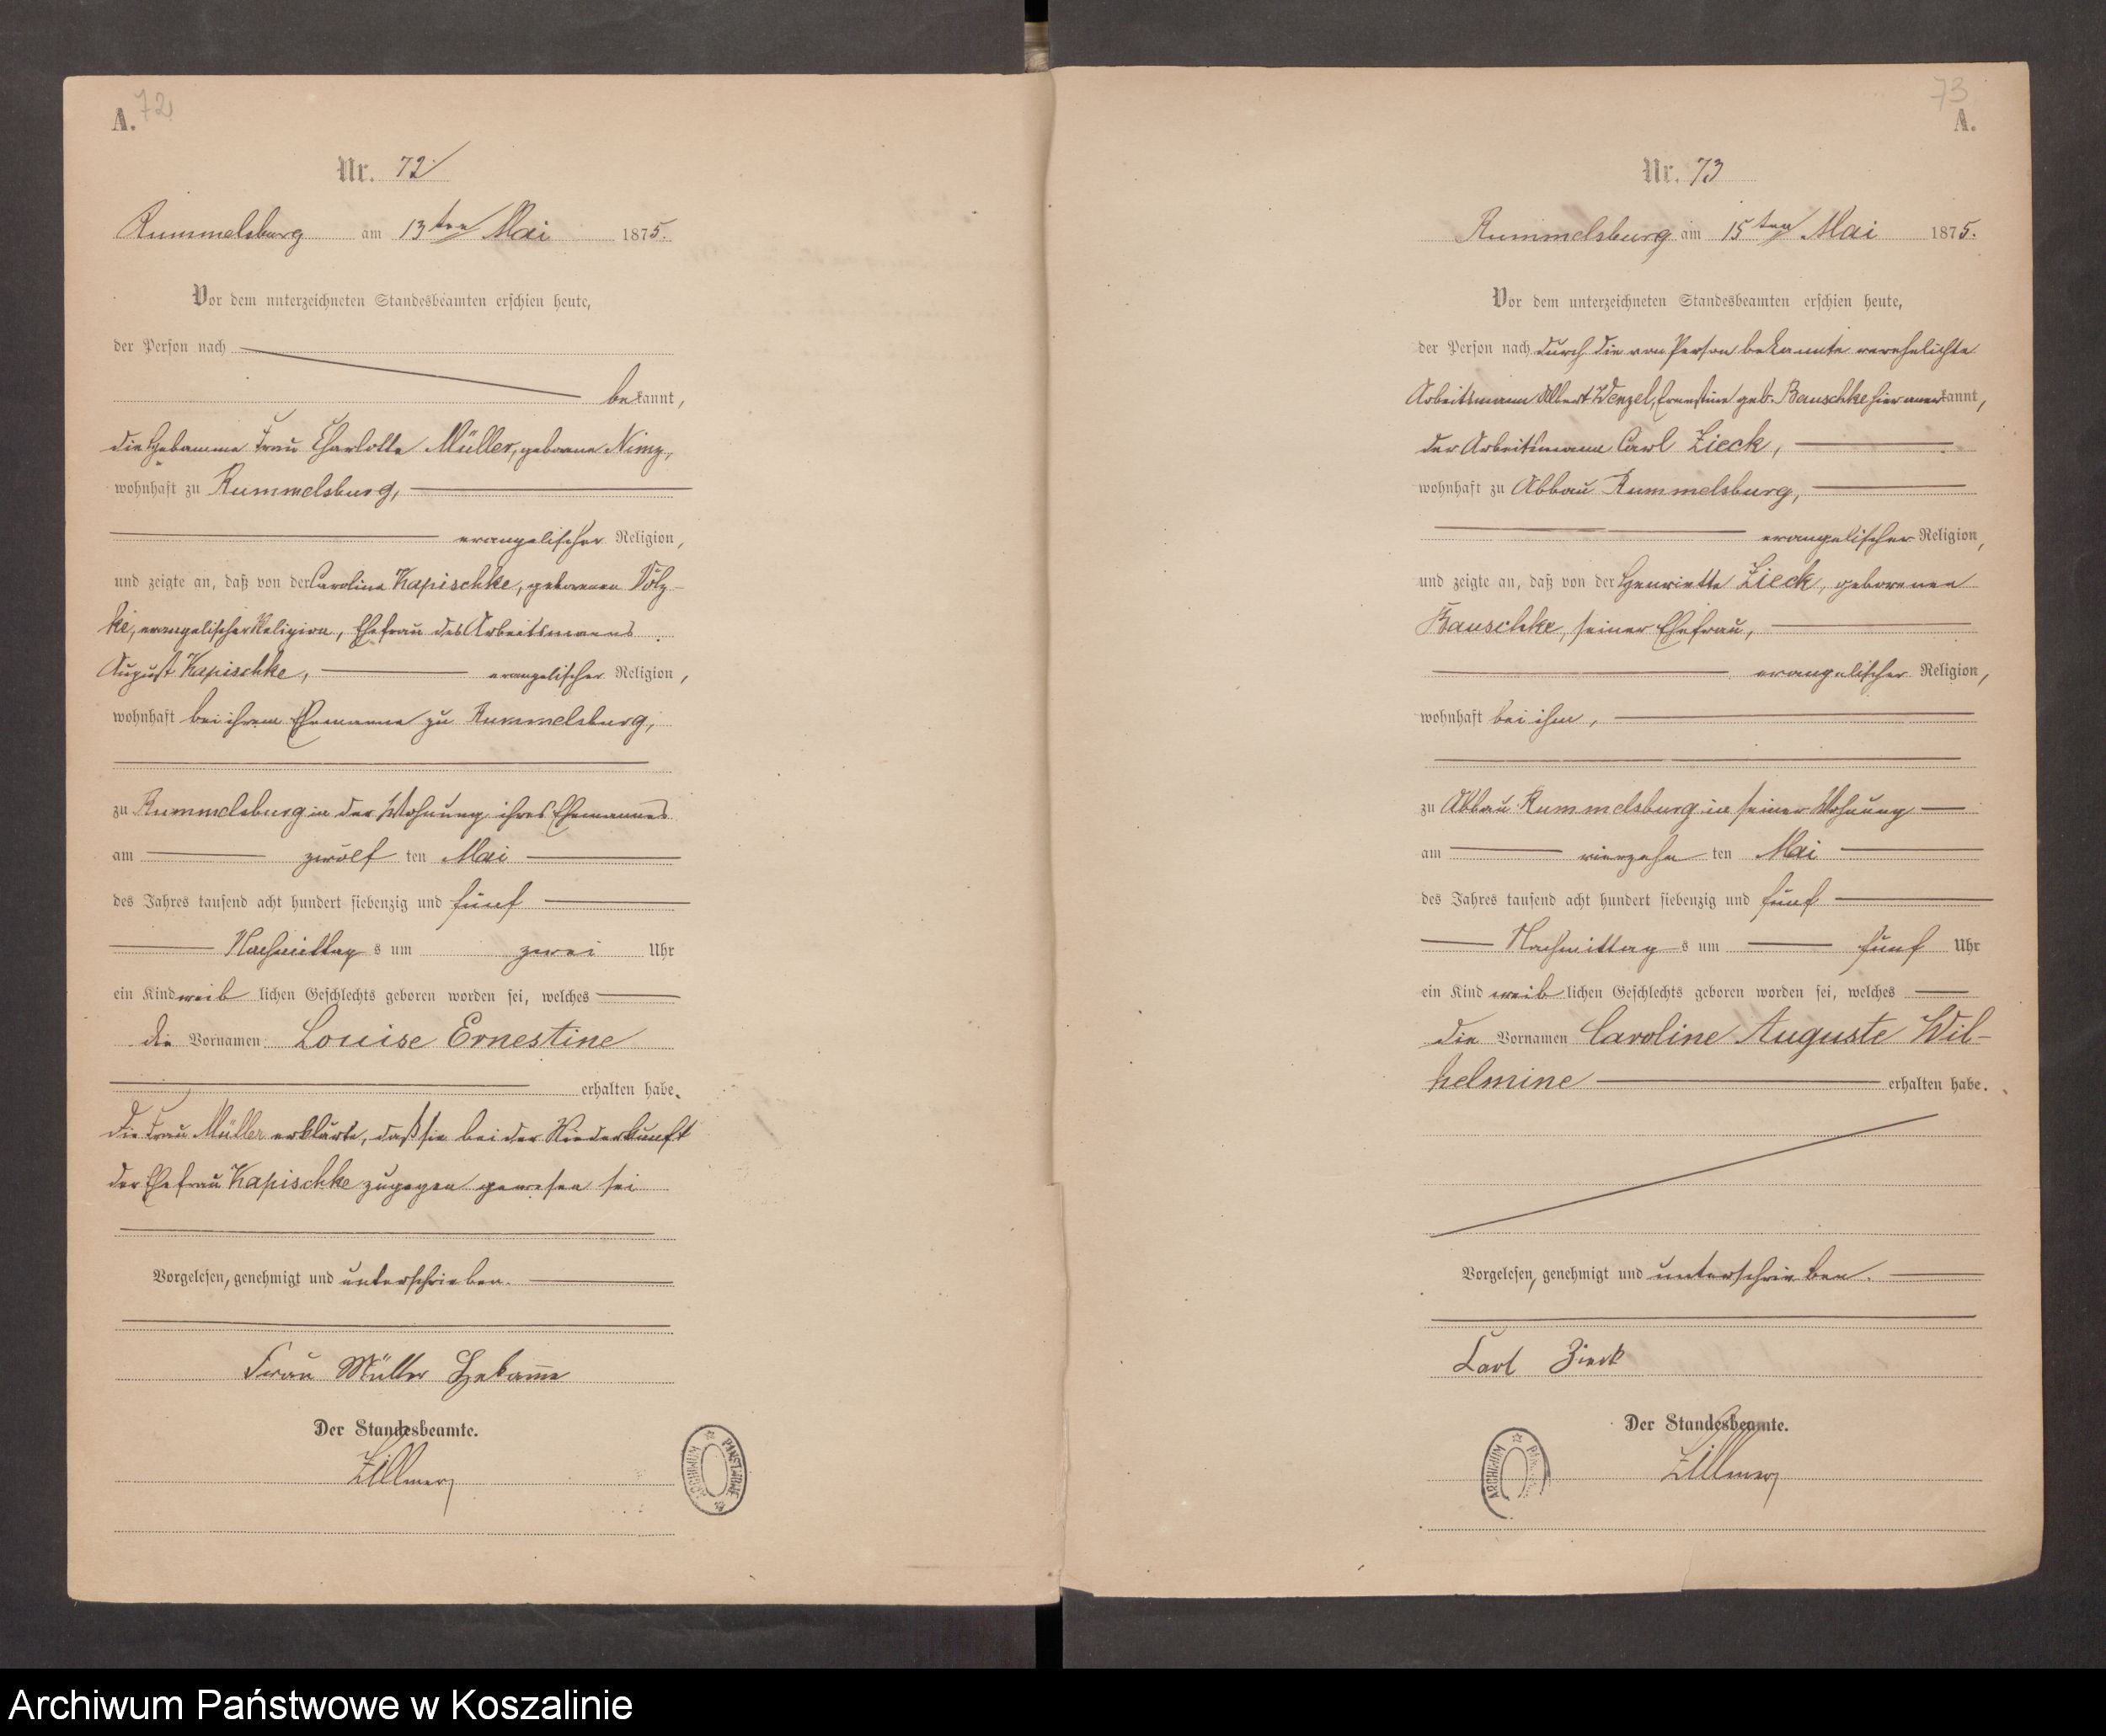 A.
72
Nr. 72
Rummelsburg am 13ten Mai 1875.
Vor dem unterzeichneten Standesbeamten erschien heute,
der Person nach
bekannt,
die Hebamme Frau Charlotte Müller, geborene Nimz,
wohnhaft zu Rummelsburg,
evangelischer Religion,
und zeigte an, daß von der Caroline Kapischke, geborenen Völz-
ke, evangelischer Religion, Ehefrau des Arbeitsmanns
August Kapischke, evangelischer Religion,
wohnhaft bei ihrem Ehemanne zu Rummelsburg,
zu Rummelsburg in der Wohnung ihres Ehemannes
am zwölf ten Mai
des Jahres tausend acht hundert siebenzig und fünf
Nachmittag s um zwei Uhr
ein Kind weib lichen Geschlechts geboren worden sei, welches
die Vornamen Louise Ernestine
erhalten habe.
Die Frau Müller erklärte, daß sie bei der Niederkunft
der Ehefrau Kapischke zugegen gewesen sei
Vorgelesen, genehmigt und unterschrieben.
Frau Müller Hebamme
Der Standesbeamte.
Zillmer
ARCHIWUM PAŃSTWOWE
73
A.
Nr. 73
Rummelsburg am 15ten Mai 1875.
Vor dem unterzeichneten Standesbeamten erschien heute,
der Person nach durch die von Person bekannte verehelichte
Arbeitsmann Albert Wenzel, Ernestine geb. Bauschke hier anerkannt,
der Arbeitsmann Carl Zieck,
wohnhaft zu Abbau Rummelsburg,
evangelischer Religion,
und zeigte an, daß von der Henriette Zieck, geborenen
Bauschke, seiner Ehefrau,
evangelischer Religion,
wohnhaft bei ihm,
zu Abbau Rummelsburg in seiner Wohnung
am vierzehn ten Mai
des Jahres tausend acht hundert siebenzig und fünf
Nachmittag s um fünf Uhr
ein Kind weib lichen Geschlechts geboren worden sei, welches
die Vornamen Caroline Auguste Wil-
helmine erhalten habe.
Vorgelesen, genehmigt und unterschrieben.
Carl Zieck
Der Standesbeamte.
Zillmer
ARCHIWUM
Archiwum Państwowe w Koszalinie